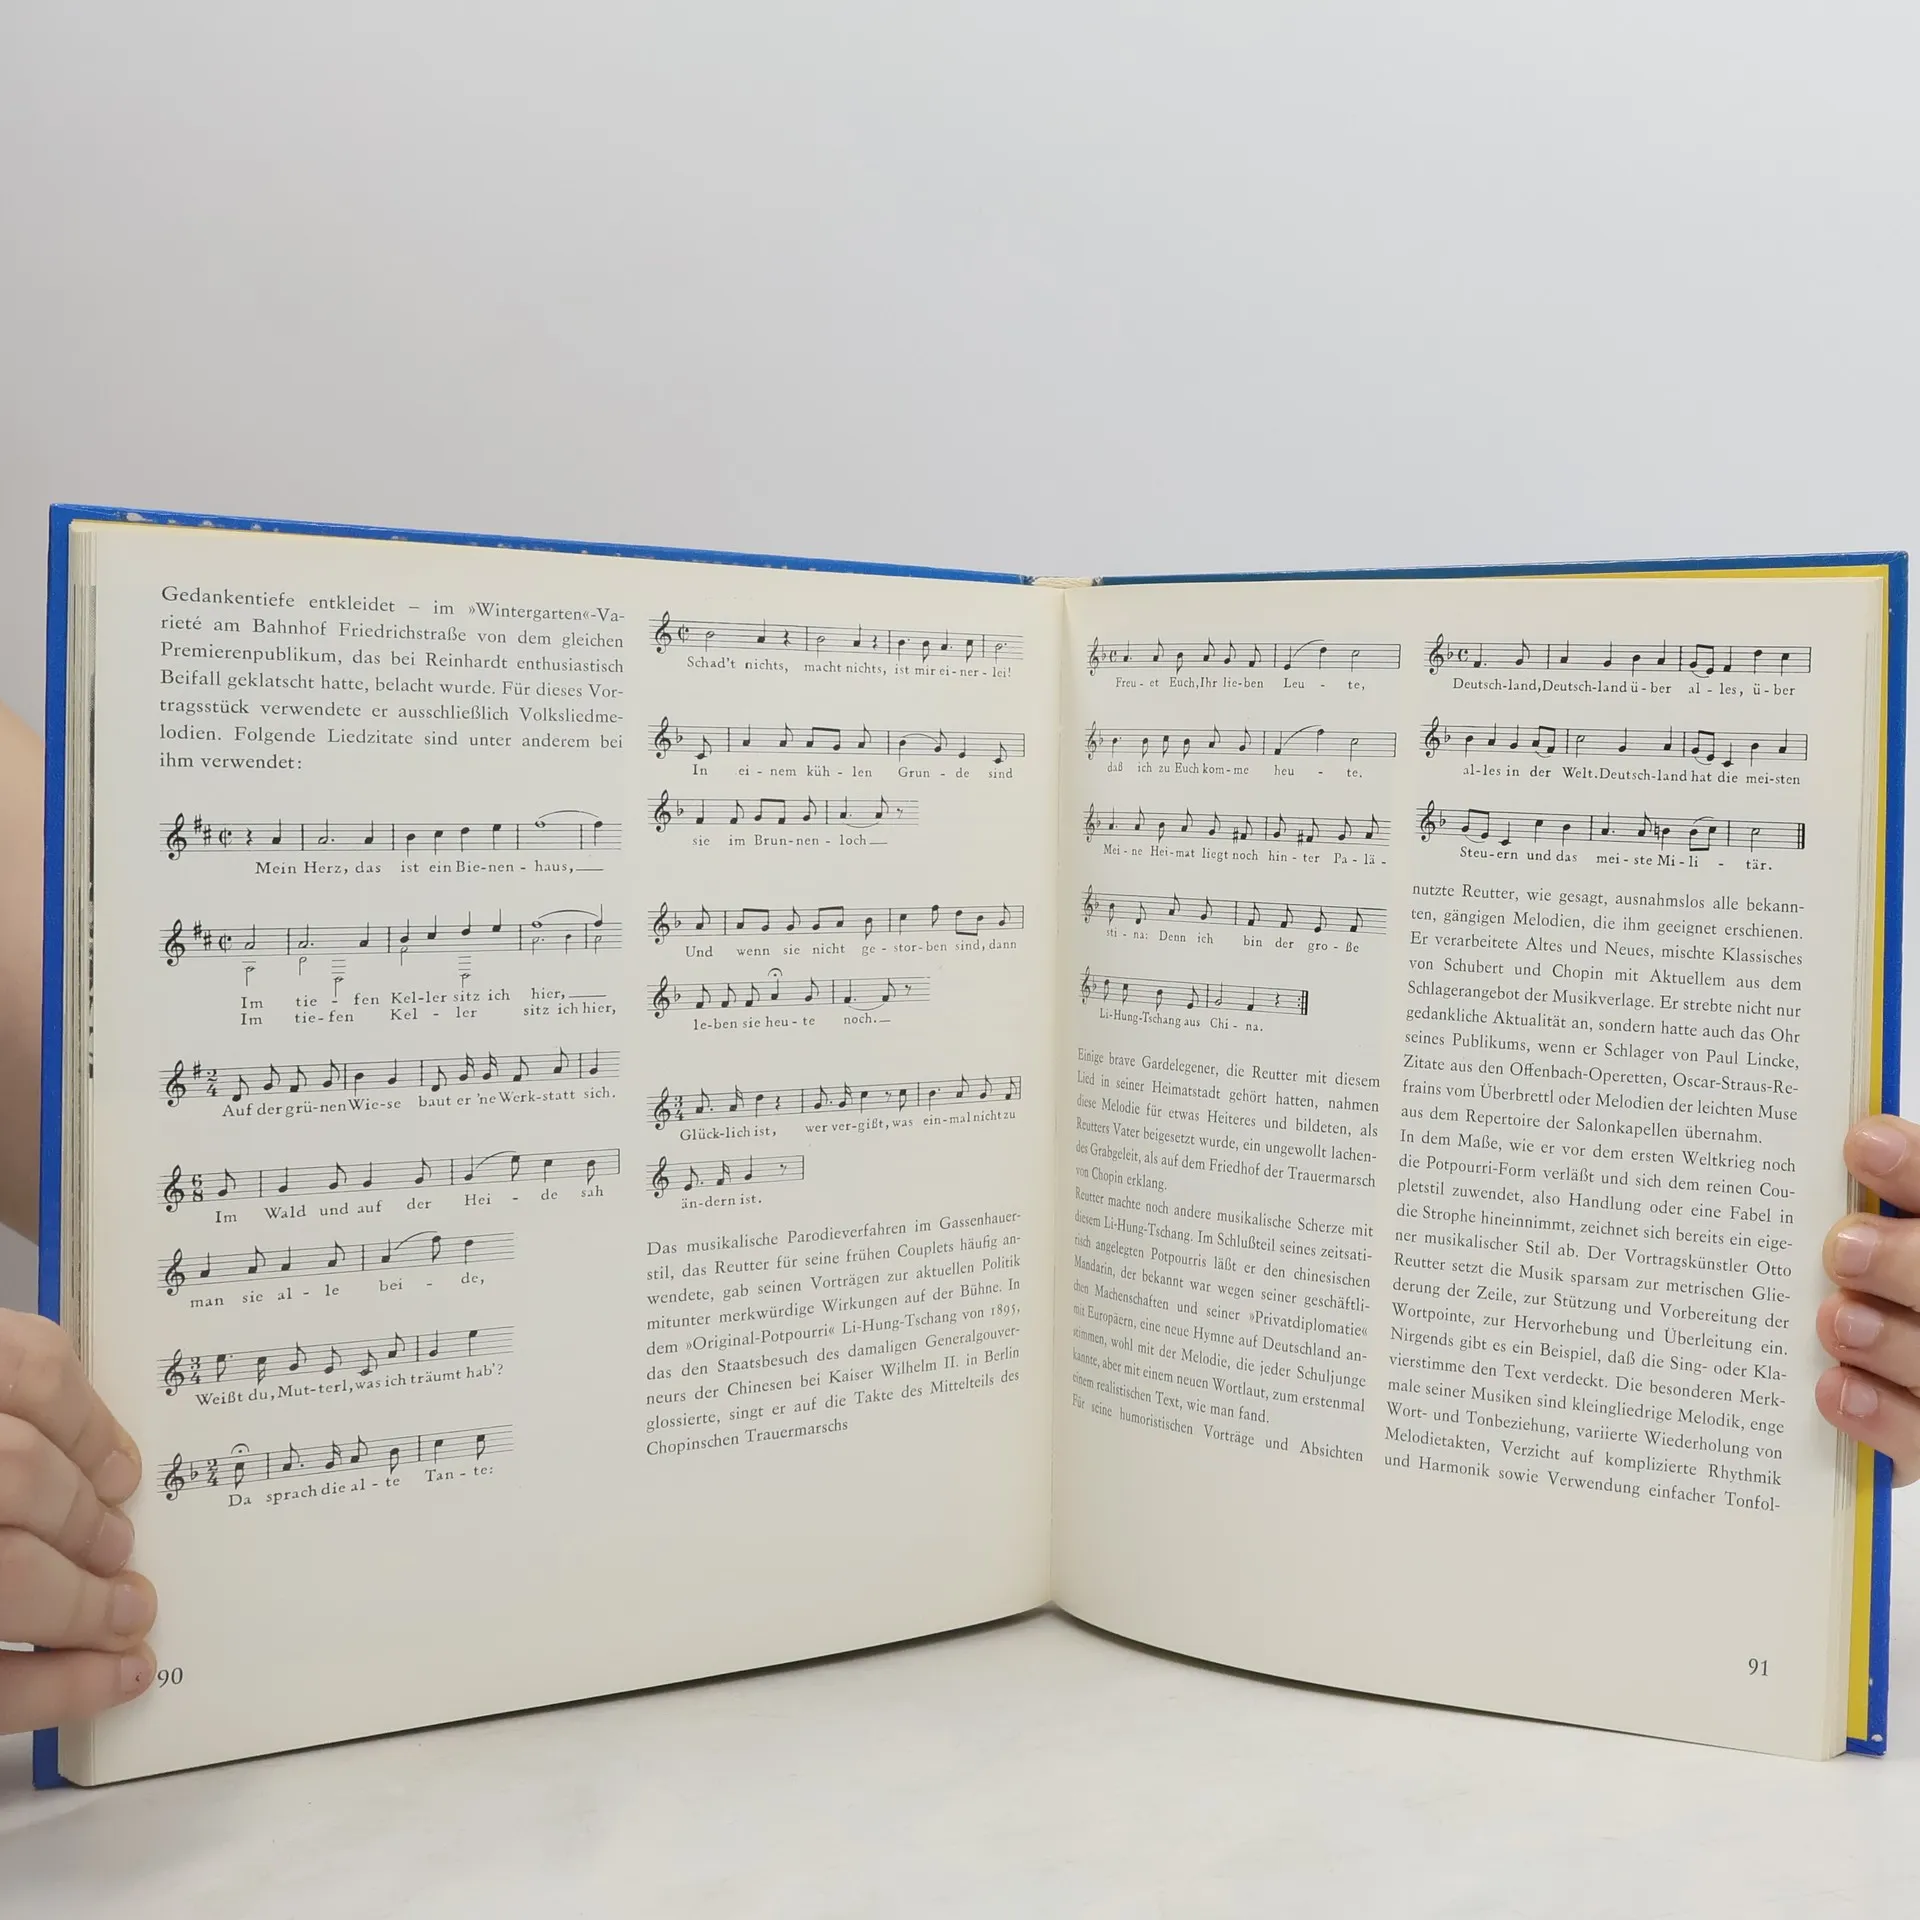 Gedankentiefe entkleidet – im »Wintergarten«-Va-
rieté am Bahnhof Friedrichstraße von dem gleichen
Premierenpublikum, das bei Reinhardt enthusiastisch
Beifall geklatscht hatte, belacht wurde. Für dieses Vor-
tragsstück verwendete er ausschließlich Volksliedme-
lodien. Folgende Liedzitate sind unter anderem bei
ihm verwendet:
Mein Herz, das ist ein Bie-nen - haus,
Im tie - fen Kel-ler sitz ich hier,
Im tie-fen Kel - ler sitz ich hier,
2/4
Auf der grü-nen Wie-se baut er 'ne Werk-statt sich.
6/8
Im Wald und auf der Hei - de sah
man sie al - le bei - de,
3/4
Weißt du, Mut-terl, was ich träumt hab'?
2/4
Da sprach die al - te Tan - te:
90
Schad't nichts, macht nichts, ist mir ei-ner-lei!
In ei-nem küh-len Grun-de sind
sie im Brun-nen-loch
Und wenn sie nicht ge-stor-ben sind, dann
le-ben sie heu-te noch.
3/4
Glück-lich ist, wer ver-gißt, was ein-mal nicht zu
än-dern ist.
Das musikalische Parodieverfahren im Gassenhauer-
stil, das Reutter für seine frühen Couplets häufig an-
wendete, gab seinen Vorträgen zur aktuellen Politik
mitunter merkwürdige Wirkungen auf der Bühne. In
dem »Original-Potpourri« Li-Hung-Tschang von 1895,
das den Staatsbesuch des damaligen Generalgouver-
neurs der Chinesen bei Kaiser Wilhelm II. in Berlin
glossierte, singt er auf die Takte des Mittelteils des
Chopinschen Trauermarschs
Freu - et Euch, Ihr lie-ben Leu - te,
daß ich zu Euch kom-me heu - te.
Mei-ne Hei-mat liegt noch hin-ter Pa-lä-
sti - na: Denn ich bin der gro - ße
Li-Hung-Tschang aus Chi - na.
Einige brave Gardelegener, die Reutter mit diesem
Lied in seiner Heimatstadt gehört hatten, nahmen
diese Melodie für etwas Heiteres und bildeten, als
Reutters Vater beigesetzt wurde, ein ungewollt lachen-
des Grabgeleit, als auf dem Friedhof der Trauermarsch
von Chopin erklang.
Reutter machte noch andere musikalische Scherze mit
diesem Li-Hung-Tschang. Im Schlußteil seines zeitsati-
risch angelegten Potpourris läßt er den chinesischen
Mandarin, der bekannt war wegen seiner geschäftli-
chen Machenschaften und seiner »Privatdiplomatie«
mit Europäern, eine neue Hymne auf Deutschland an-
stimmen, wohl mit der Melodie, die jeder Schuljunge
kannte, aber mit einem neuen Wortlaut, zum erstenmal
einem realistischen Text, wie man fand.
Für seine humoristischen Vorträge und Absichten
Deutsch-land, Deutsch-land ü-ber al-les, ü-ber
al-les in der Welt. Deutsch-land hat die mei-sten
Steu-ern und das mei-ste Mi-li - tär.
nutzte Reutter, wie gesagt, ausnahmslos alle bekann-
ten, gängigen Melodien, die ihm geeignet erschienen.
Er verarbeitete Altes und Neues, mischte Klassisches
von Schubert und Chopin mit Aktuellem aus dem
Schlagerangebot der Musikverlage. Er strebte nicht nur
gedankliche Aktualität an, sondern hatte auch das Ohr
seines Publikums, wenn er Schlager von Paul Lincke,
Zitate aus den Offenbach-Operetten, Oscar-Straus-Re-
frains vom Überbrettl oder Melodien der leichten Muse
aus dem Repertoire der Salonkapellen übernahm.
In dem Maße, wie er vor dem ersten Weltkrieg noch
die Potpourri-Form verläßt und sich dem reinen Cou-
pletstil zuwendet, also Handlung oder eine Fabel in
die Strophe hineinnimmt, zeichnet sich bereits ein eige-
ner musikalischer Stil ab. Der Vortragskünstler Otto
Reutter setzt die Musik sparsam zur metrischen Glie-
derung der Zeile, zur Stützung und Vorbereitung der
Wortpointe, zur Hervorhebung und Überleitung ein.
Nirgends gibt es ein Beispiel, daß die Sing- oder Kla-
vierstimme den Text verdeckt. Die besonderen Merk-
male seiner Musiken sind kleingliedrige Melodik, enge
Wort- und Tonbeziehung, variierte Wiederholung von
Melodietakten, Verzicht auf komplizierte Rhythmik
und Harmonik sowie Verwendung einfacher Tonfol-
91